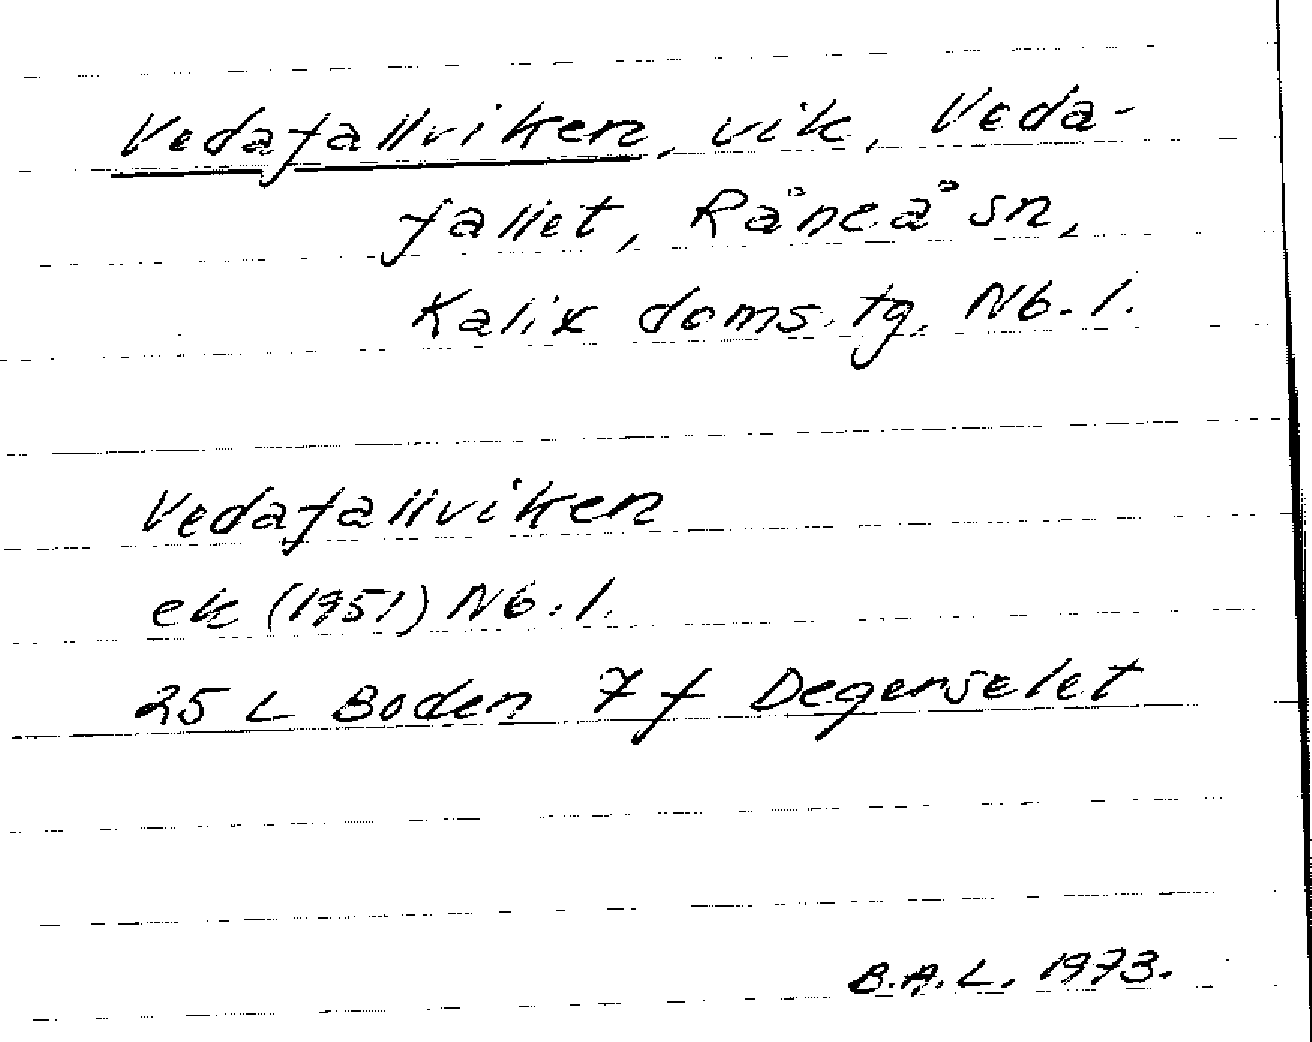 Vedafallviken, vik, Veda-
fallet, Råneå sn,
Kalix doms. tg. Nb. l.
Vedafallviken
ek (1951) Nb. l.
25 L Boden 7 f Degerselet
B.A.L. 1973.